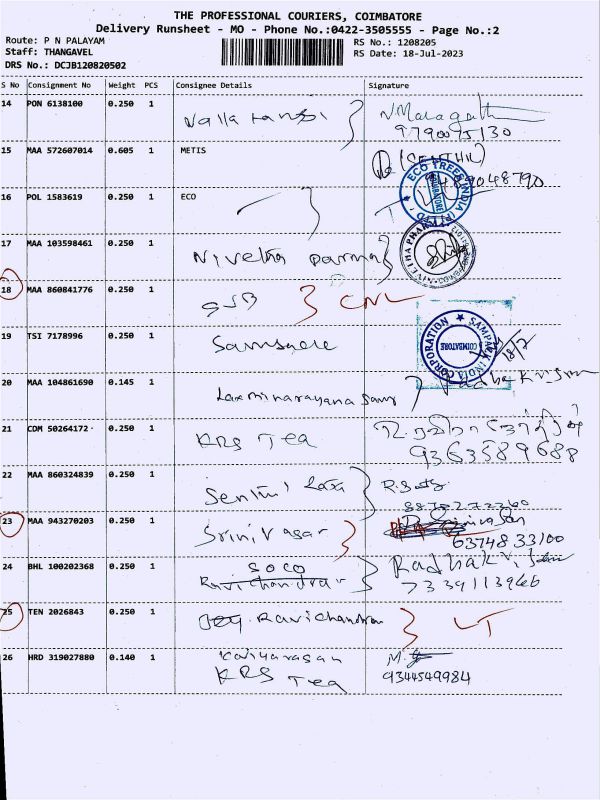 THE PROFESSIONAL COURIERS, COIMBATORE
Delivery Runsheet - MO - Phone No.:0422-3505555 - Page No.:2
Route: P N PALAYAM
RS No.: 1208205
Staff: THANGAVEL
RS Date: 18-Jul-2023
DRS No.: DCJB120820502
S No Consignment No Weight PCS Consignee Details Signature
14 PON 6138100 0.250 1 Nalla
9790075130
15 MAA 572607014 0.605 1 METIS (SENTHIL)
16 POL 1583619 0.250 1 ECO
ECO TREES INDIA (P) LTD
COIMBATORE
17 MAA 103598461 0.250 1 Nivetha parma
NIVETHA PHARMA
18 MAA 860841776 0.250 1 CNL
19 TSI 7178996 0.250 1
SAMPARK INDIA CORPORATION
COIMBATORE
18/7
20 MAA 104861690 0.145 1 Laxminarayana Radhakrishnan
21 CDM 50264172 0.250 1 KRS Tea
9363589688
22 MAA 860324839 0.250 1 Senthil
23 MAA 943270203 0.250 1 Srinivasan Srinivasan
6374833100
24 BHL 100202368 0.250 1 SOCO Radhakrishnan
Ravichandran
25 TEN 2026843 0.250 1 Ravichandran LT
26 HRD 319027880 0.140 1 Kaliyarasan
KRS Tea 9344549984